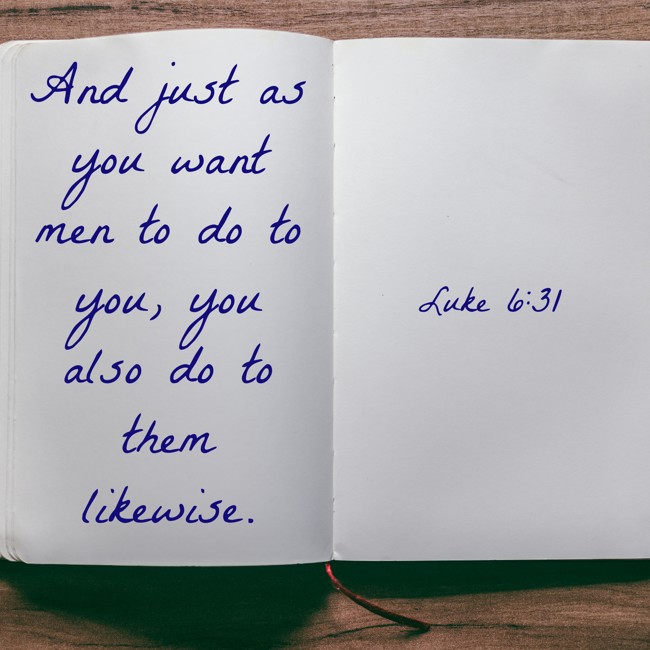 And just as
you want
men to do to
you, you
also do to
them
likewise.
Luke 6:31